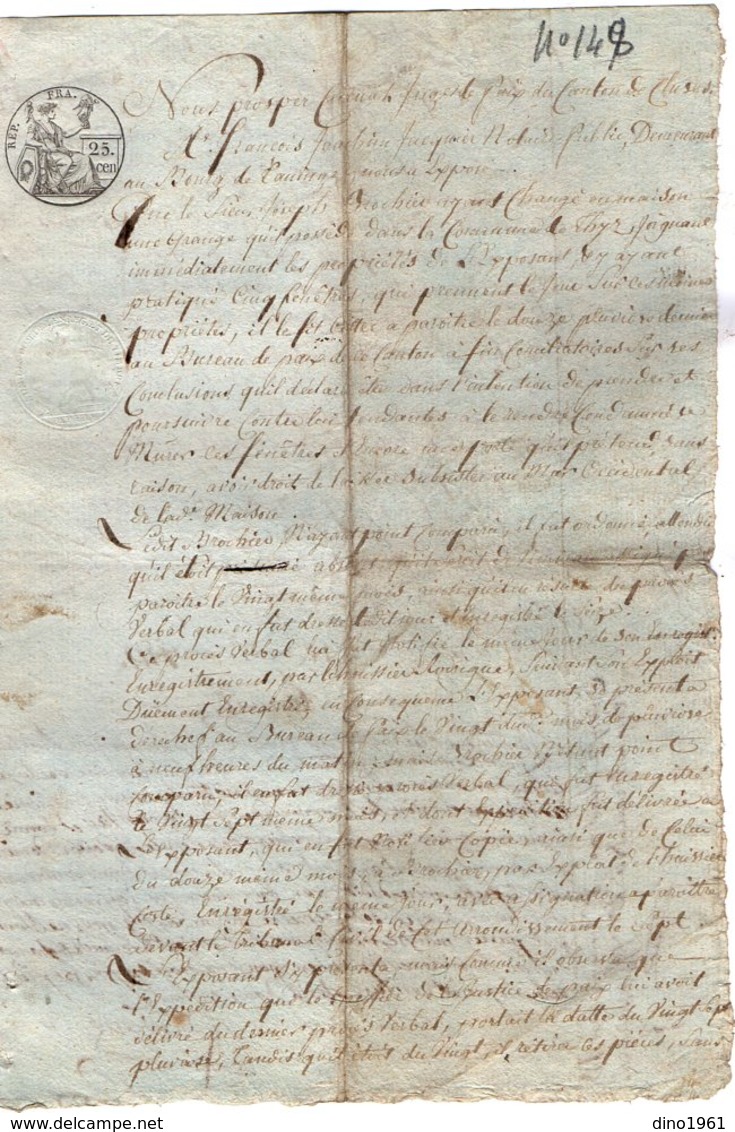 N° 148
REP. FRA.
25.
cen
Nous prosper Juge de Paix du Canton de Cluses
Me. François Joachim Jacquier Notaire Public, Demeurant
au Bourg de Taninge, nous a Exposé
Que le Sieur Joseph Brochier ayant Changé en maison
une Grange qu'il possède dans la Commune de Thyz Joignant
immédiatement les propriétés de L'Exposant & y ayant
pratiqué Cinq fenêtres, qui prennent le Jour Sur ces mêmes
propriétés, il le fit Cittée a paroître le douze pluviose dernier
au Bureau de paix de ce Canton à fin Sur les
Conclusions qu'il déclara être dans l'intention de prendre et
poursuivre Contre lui tendantes à le rendre Condamné à
Murer ces fenêtres & Encore une porte qu'il prétend, sans
raison, avoir droit de faire Subsister au Mur Occidental
de lad. Maison
Ledit Brochier N'ayant point Comparu, il fut ordonné, attendu
qu'il étoit
paroître le Vingt même mois, ainsi qu'il en résulte du procès
Verbal qui en fut dressé ledit jour et enregistré le Seize.
Ce procès Verbal lui fut Notifié le même Jour de son Enregist.
Enregistrement, par l'huissier suivant son Exploit
Dûement Enregistré, en Consequence L'Exposant Se présenta
derechef au Bureau de Paix le Vingt dud. mois de pluviose
à neuf heures du matin, mais Brochier N'étant point
Comparu, il en fut dressé procès Verbal, qui fut Enregistré
le Vingt Sept même mois, & dont Expédition fut délivrée a
L'Exposant, qui en fit copie, ainsi que de Celui
du douze même mois, à Brochier, par Exploit de l'huissier
Coste, Enregistré le même Jour, avec assignation a paroître
devant le tribunal Civil de Cet arrondissement le Sept
L'Exposant S'y presenta mais Comme il observa que
l'Expédition que le Greffier de la Justice de paix lui avoit
délivré du dernier procès Verbal, portait la datte du Vingt Sept
pluviose, Tandis qu'il étoit du Vingt, il retira ces pièces, Sans
dino1961